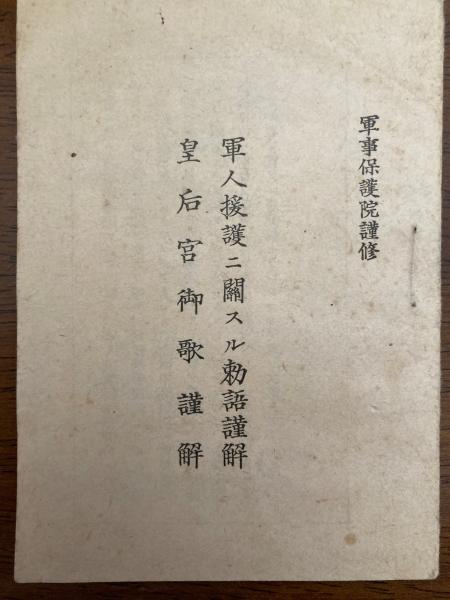 軍事保護院謹修
軍人援護ニ關スル勅語謹解
皇后宮御歌謹解